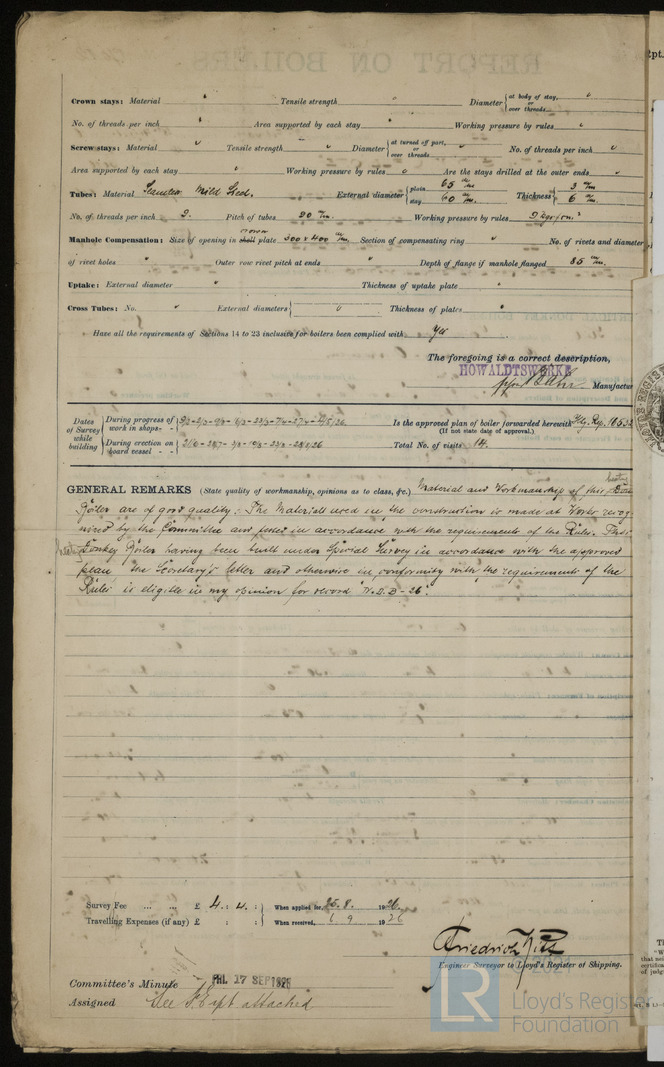 Crown stays: Material " Tensile strength " Diameter { at body of stay, or over threads "
No. of threads per inch " Area supported by each stay " Working pressure by rules "
Screw stays: Material " Tensile strength " Diameter { at turned off part, or over threads " No. of threads per inch "
Area supported by each stay " Working pressure by rules " Are the stays drilled at the outer ends "
Tubes: Material Seamless Mild Steel. External diameter { plain 65 m/m stay 60 m/m. Thickness { 3 m/m 6 m/m.
No. of threads per inch 9. Pitch of tubes 90 m/m. Working pressure by rules
Manhole Compensation: Size of opening in shell crown plate 300 x 400 m/m. Section of compensating ring " No. of rivets and diameter
of rivet holes " Outer row rivet pitch at ends " Depth of flange if manhole flanged 85 m/m.
Uptake: External diameter " Thickness of uptake plate "
Cross Tubes: No. " External diameters { " Thickness of plates "
Have all the requirements of Sections 14 to 23 inclusive for boilers been complied with yes
The foregoing is a correct description,
HOWALDTSWERKE
Manufactur
Dates of Survey while building { During progress of work in shops - -
Is the approved plan of boiler forwarded herewith
(If not state date of approval.)
During erection on board vessel - - -
Total No. of visits 14.
GENERAL REMARKS (State quality of workmanship, opinions as to class, &c.) Material and Workmanship of this
Boiler are of good quality. The Material used in the construction is made at Works recog
nized by the Committee and tested in accordance with the requirements of the Rules. This
Donkey Boiler having been built under Special Survey in accordance with the approved
plan the Secretary's letter and otherwise in conformity with the requirements of the
Rules is eligible in my opinion for record "N.D.B - 26".
Survey Fee ... ... £ 4 : 4 : } When applied for, 25.8. 1926.
Travelling Expenses (if any) £ : : } When received, 6.9 1926
Friedrich
Engineer Surveyor to Lloyd's Register of Shipping.
Committee's Minute FRI. 17 SEP 1926
Assigned See F.E. rpt attached
Lloyd's Register
Foundation